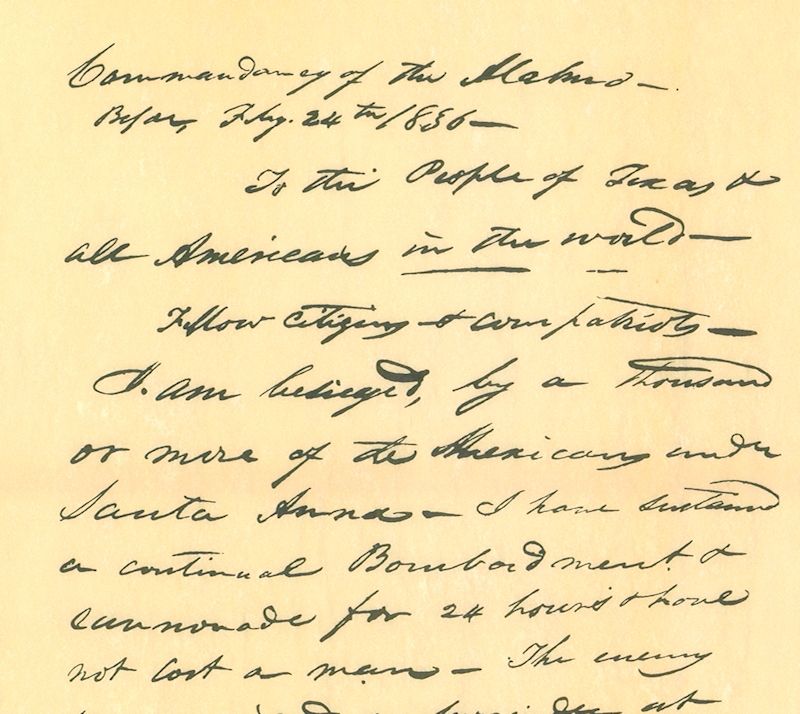 Commandancy of the Alamo—
Bejar, Feby. 24th 1836—
To the People of Texas &
all Americans in the world—
Fellow citizens & compatriots—
I am besieged, by a thousand
or more of the Mexicans under
Santa Anna— I have sustained
a continual Bombardment &
cannonade for 24 hours & have
not lost a man— The enemy
at